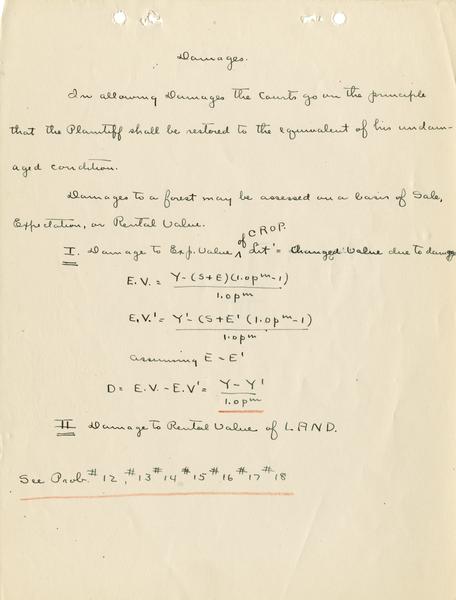 Damages.
In allowing Damages the Courts go on the principle
that the Plaintiff shall be restored to the equivalent of his undam-
aged condition.
Damages to a forest may be assessed on a basis of Sale,
Expectation, or Rental Value.
I. Damage to Exp. Value of CROP. Let ' = Changed Value due to damage
E.V. = Y-(S+E)(1.0pᵐ-1) / 1.0pᵐ
E.V.' = Y'-(S+E'(1.0pᵐ-1) / 1.0pᵐ
assuming E = E'
D = E.V. - E.V' = Y-Y' / 1.0pᵐ
II Damage to Rental Value of LAND.
See Prob. #12, #13 #14 #15 #16 #17 #18